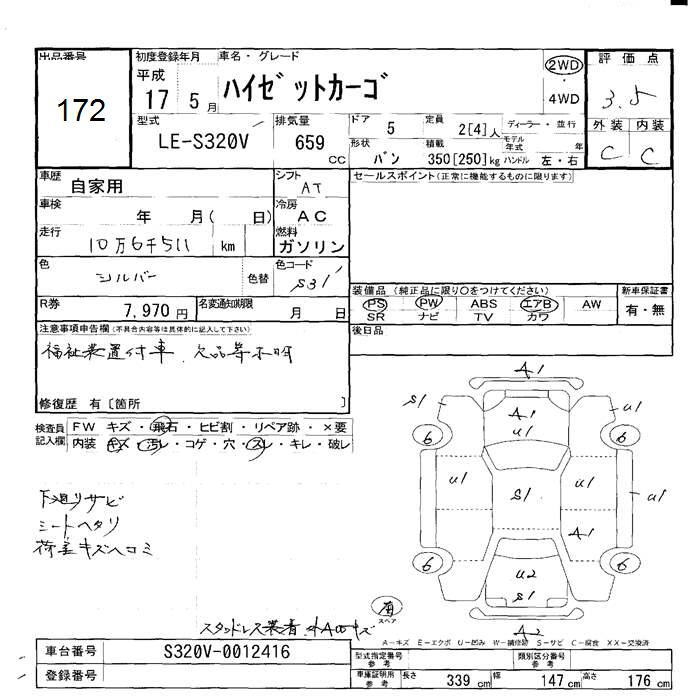 出品番号
172
初度登録年月
平成
17 5 月
車名・グレード
ハイゼットカーゴ
2WD
・
4WD
評価点
3.5
外装 内装
C C
型式
LE-S320V
排気量
659
CC
ドア
5
定員
2[4]人
ディーラー・並行
モデル年式 年
形状
バン
積載
350[250]kg
ハンドル 左・右
車歴
自家用
シフト
AT
車検
年 月( 日)
冷房
AC
走行
10万6千511 km
燃料
ガソリン
色
シルバー
色替
色コード
S31
R券
7,970円
名変通知期限
月 日
セールスポイント(正常に機能するものに限ります)
装備品 (純正品に限り○をつけてください)
PS PW ABS エアB AW
SR ナビ TV カワ
新車保証書
有・無
後日品
注意事項申告欄(不具合内容等は具体的に記入して下さい)
福祉装置付車、欠品等不明
修復歴 有〔箇所 〕
検査員記入欄
FW キズ・飛石・ヒビ割・リペア跡・×要
内装 キズ・汚レ・コゲ・穴・スレ・キレ・破レ
下廻りサビ
シートヘタリ
荷室キズヘコミ
A1
S1 A1 U1
U1
6 6
U1 S1 U1 U1
A1
6 6
U2
S1
A2
有
スペア
A-キズ E-エクボ U-凹み W-補修跡 S-サビ C-腐食 XX-交換済
車台番号
S320V-0012416
登録番号
型式指定番号
参考
類別区分番号
参考
車庫証明用
参考
長さ 339 cm
幅 147 cm
高さ 176 cm